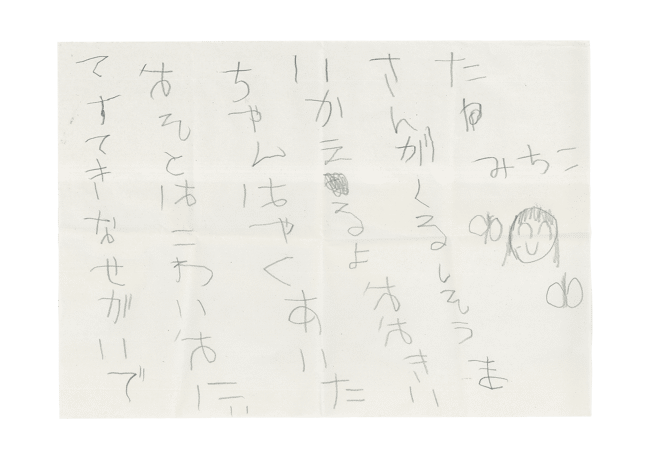 みちこ
たね
さんがくるしそうま
いかえるよおおきい
ちゃんはやくあいた
おそとはこわいおに
てすてきなせがいで